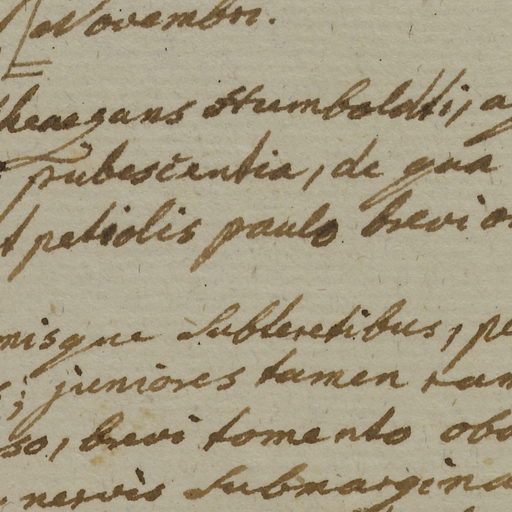 Novembri.
Humboldtii, a
pubescentia, de qua
t petiolis paulo brevio
misque subteretibus, pe
s; juniores tamen ram
so, brevi tomento obd
nervis submargina